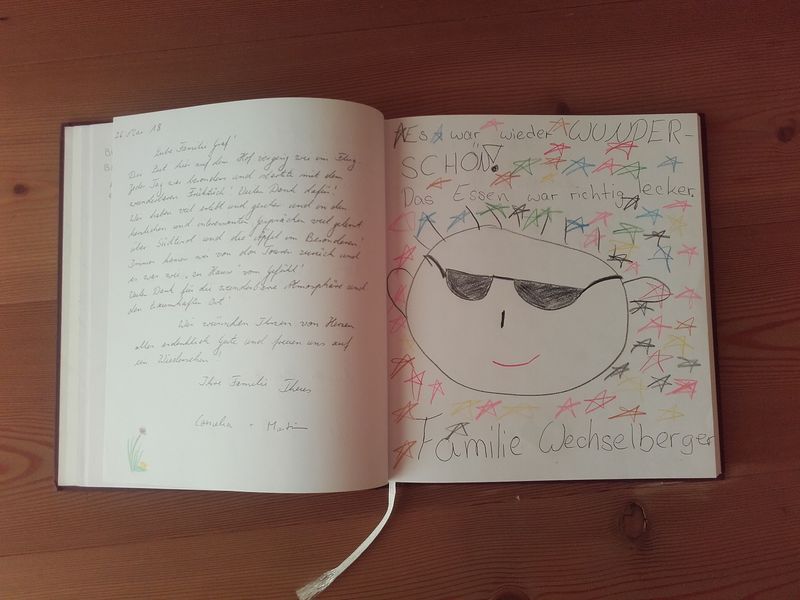 26. Mai 18
Liebe Familie Graf!
Die Zeit hier auf dem Hof verging wie im Flug.
Jeder Tag war besonders und startete mit dem
wunderbaren Frühstück! Vielen Dank dafür!
Wir haben viel erlebt und gesehen und in den
herzlichen und interessanten Gesprächen viel gelernt
über Südtirol und die Äpfel im Besonderen!
Immer kamen wir von den Touren zurück und
es war wie „zu Hause" vom Gefühl!
Vielen Dank für die wunderbare Atmosphäre und
den traumhaften Ort!
Wir wünschen Ihnen von Herzen
alles erdenklich Gute und freuen uns auf
ein Wiedersehen!
Ihre Familie Theres
Cornelia + Martin
Es war wieder WUNDER-
SCHÖN!
Das Essen war richtig lecker.
Familie Wechselberger